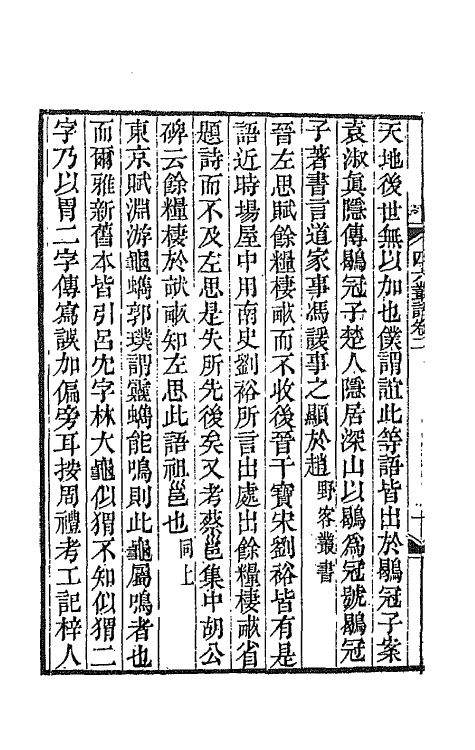 天地後世無以加也僕謂誼此等語皆出於鶡冠子案
袁淑眞隱傳鶡冠子楚人隱居深山以鶡爲冠號鶡冠
子著書言道家事馮諼事之顯於趙野客叢書
晉左思賦餘糧棲畝而不收後晉干寶宋劉裕皆有是
語近時場屋中用南史劉裕所言出處出餘糧棲畝省
題詩而不及左思是失所先後矣又考蔡邕集中胡公
碑云餘糧棲於畎畝知左思此語祖邕也同上
東京賦淵游龜蠵郭璞謂靈蠵能鳴則此龜屬鳴者也
而爾雅新舊本皆引呂忱字林大龜似猬不知似猬二
字乃以胃二字傳寫誤加偏旁耳按周禮考工記梓人
叢話卷二
十